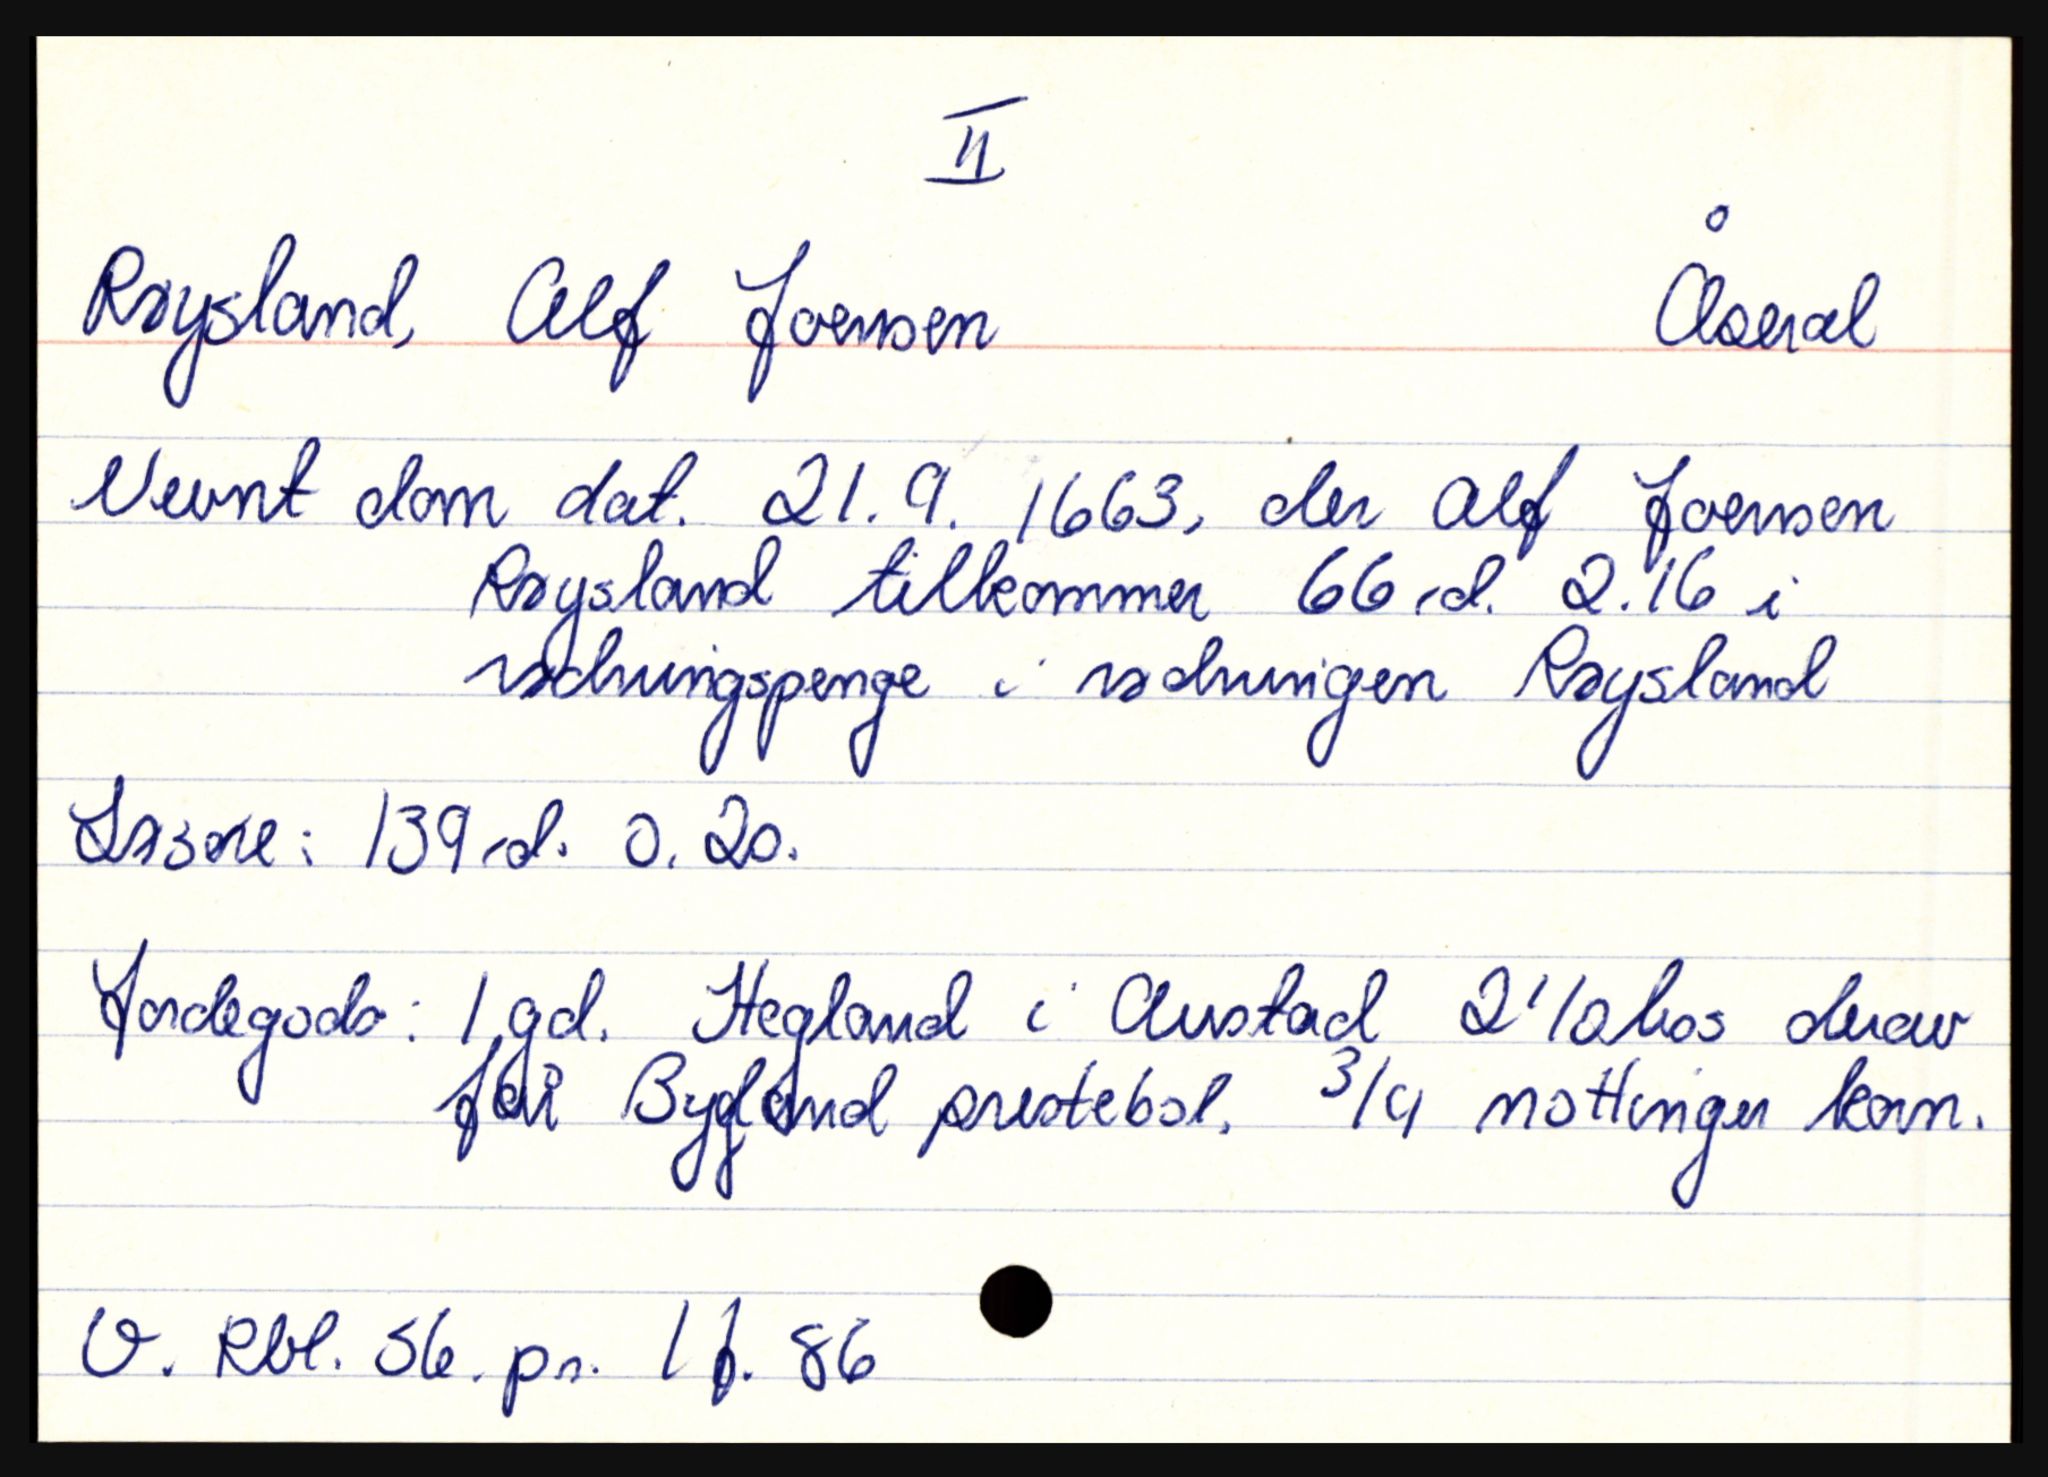 II
Røysland, Alf Joensen Åseral
Nevnt dom dat. 21.9.1663, der Alf Joensen
Røysland tilkommer 66 rd. 2.16 i
rødningspenge i rødningen Røysland
Løsøre: 139 rd. 0.20.
Jordegods: 1 gd. Hegland i Austad 2 1/2 hos derav
får Bygland prestebol. 3/4 nøttinger korn.
V. Rbl. Sk. pr. 1 f. 86